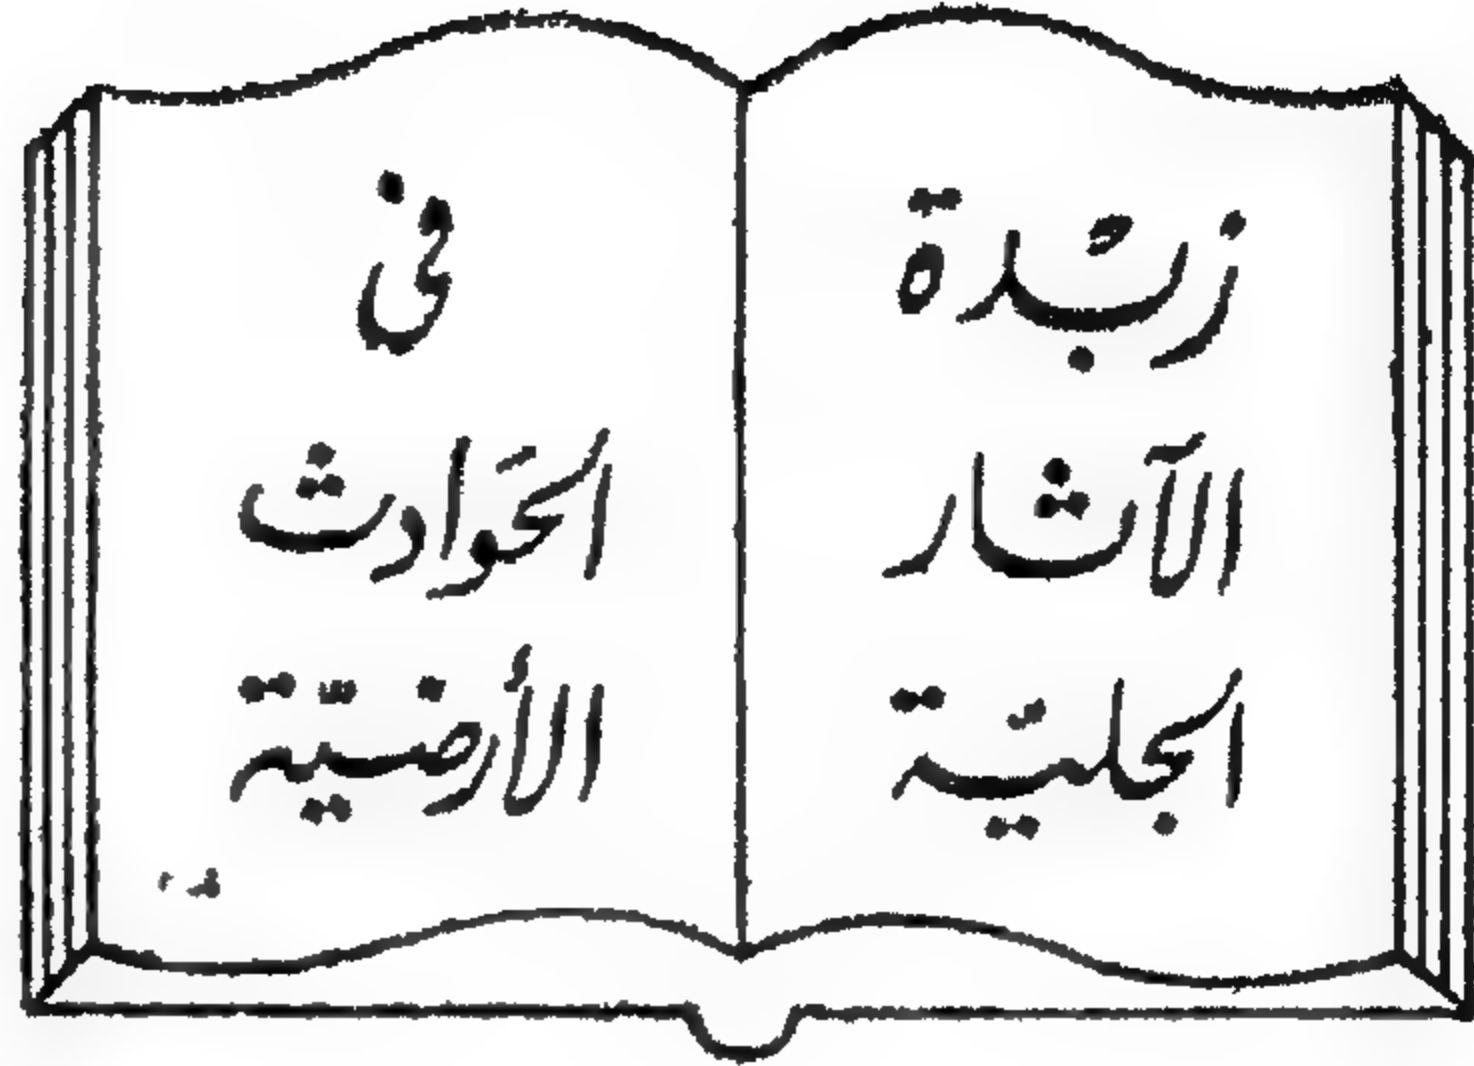 زبْدة
الآثار
الجليّة
في
الحَوادث
الأرضيّة